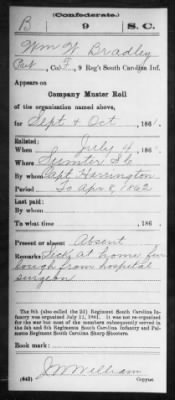 (Confederate.)
B 9 S. C.
Wm W. Bradley
Pvt, Co. F, 9 Reg't South Carolina Inf.
Appears on
Company Muster Roll
of the organization named above,
for Sept & Oct, 1861.
Enlisted:
When July 4, 186
Where Sumter So
By whom Capt Harrington
Period To Apr 8, 1862
Last paid:
By whom
To what time , 186 .
Present or absent Absent
Remarks: Sick at home fur
lough from hospital
surgeon
The 9th (also called the 2d) Regiment South Carolina In-
fantry was organized July 11, 1861. It was not re-organized
for the war but most of the members subsequently served in
the 5th and 6th Regiments South Carolina Infantry and Pal-
metto Regiment South Carolina Sharp Shooters.
Book mark:
(642) Copyist.